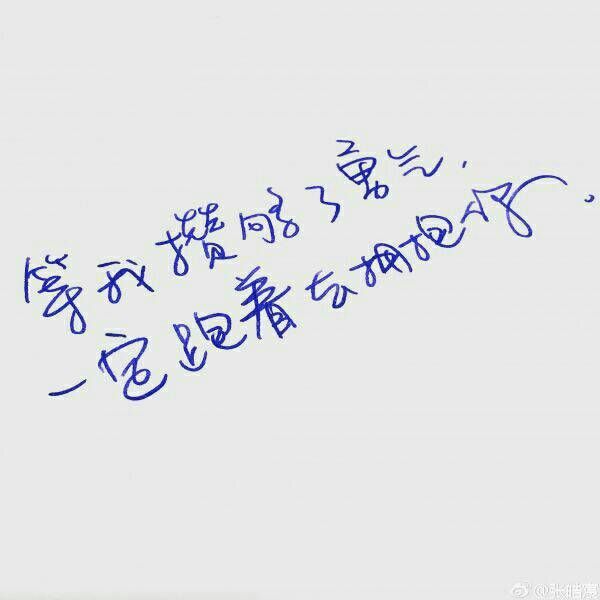 等我攒够了勇气.
一定跑着去拥抱你.
@张皓宸